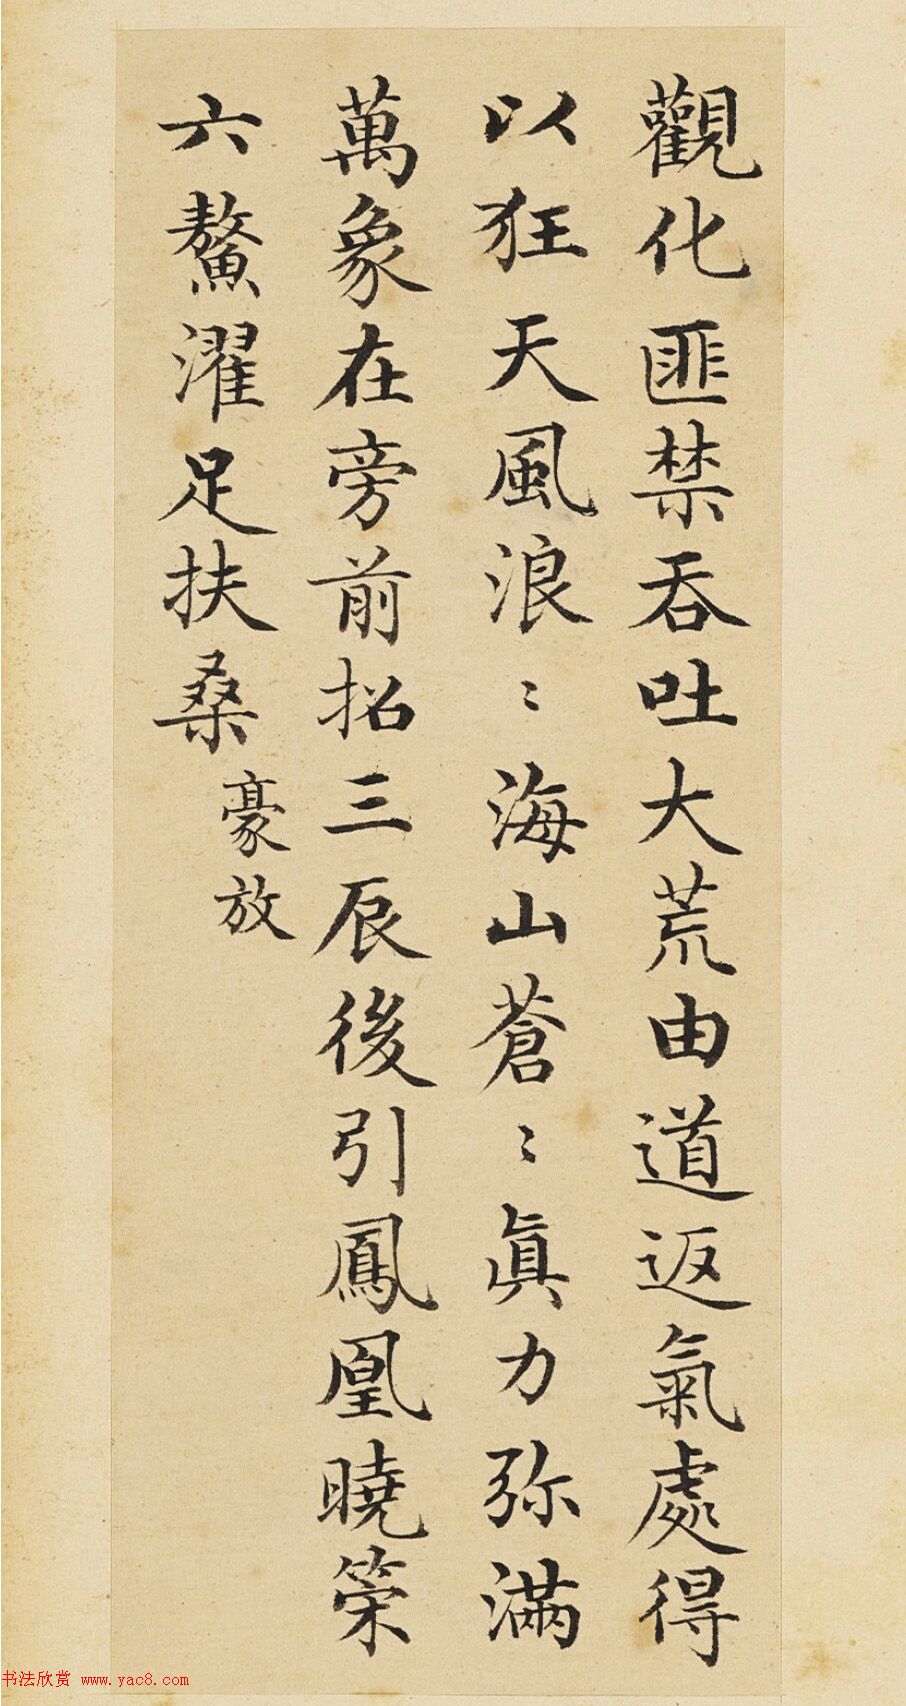 觀化匪禁吞吐大荒由道返氣處得
以狂天風浪〻海山蒼〻眞力弥滿
萬象在旁前招三辰後引鳳凰曉策
六鰲濯足扶桑
豪放
书法欣赏 www.yac8.com